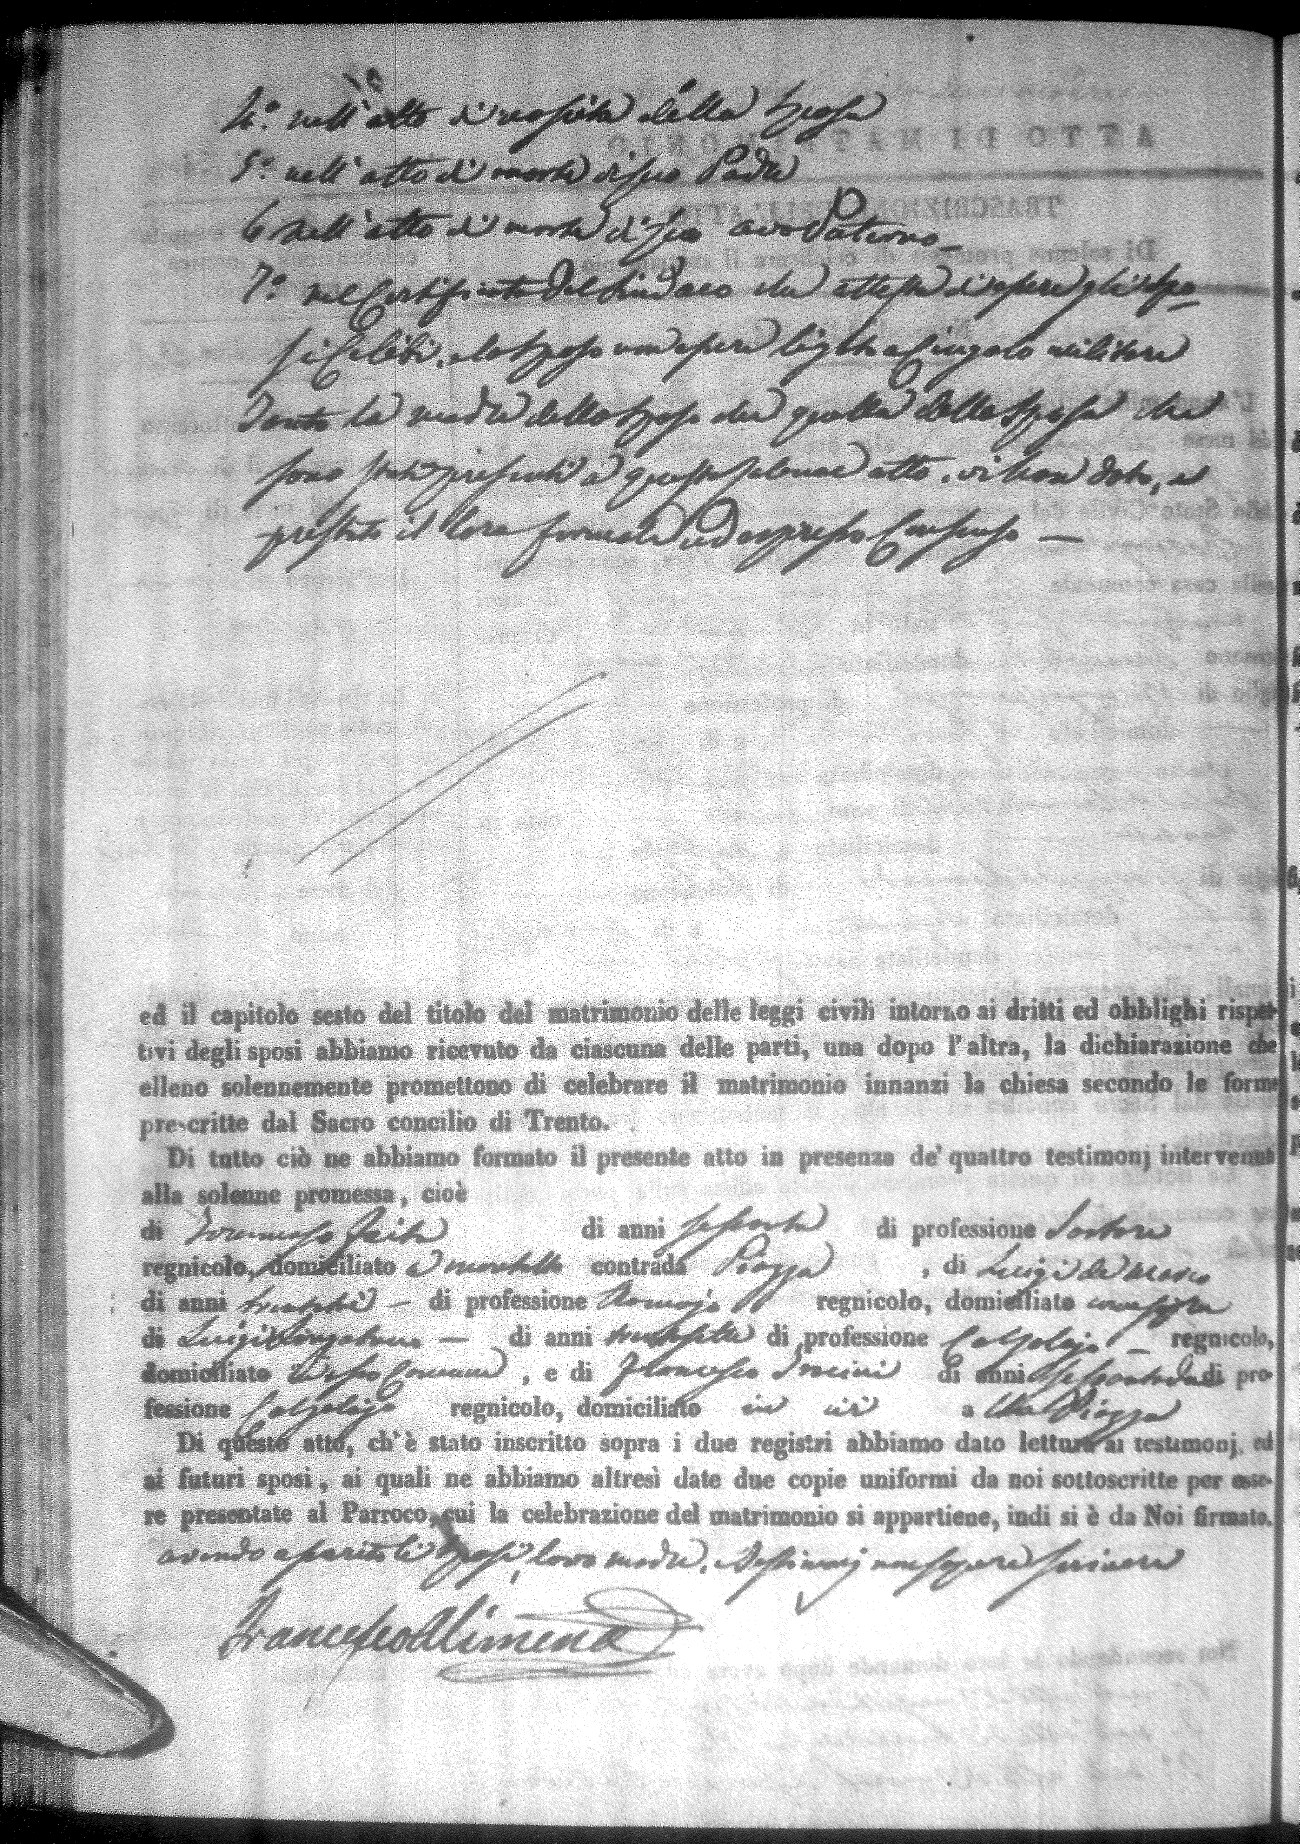 4.° nell'atto di nascita della sposa
5.° nell'atto di morte di suo Padre
6 nell'atto di morte di suo avo Paterno
7.° nel Certificato del Sindaco che attesta d'essere gli spo-
si celibi, e lo sposo non essere ligato a Cingolo militare
Tanto la madre dello sposo che quella della sposa che
sono presenti a questo solenne atto, vi han dato, e
prestato il loro formale ed espresso Consenso —
ed il capitolo sesto del titolo del matrimonio delle leggi civili intorno ai dritti ed obblighi rispet-
tivi degli sposi abbiamo ricevuto da ciascuna delle parti, una dopo l'altra, la dichiarazione che
elleno solennemente promettono di celebrare il matrimonio innanzi la chiesa secondo le forme
prescritte dal Sacro concilio di Trento.
Di tutto ciò ne abbiamo formato il presente atto in presenza de' quattro testimonj intervenuti
alla solenne promessa, cioè
di Francesco di anni sessanta di professione Sartore
regnicolo, domiciliato contrada Piazza , di Luigi de Marco
di anni — di professione regnicolo, domiciliato
di Luigi — di anni di professione Calzolajo — regnicolo,
domiciliato in esso Comune , e di Francesco di anni di pro-
fessione Calzolajo regnicolo, domiciliato in ivi a alla Piazza
Di questo atto, ch'è stato inscritto sopra i due registri abbiamo dato lettura ai testimonj, ed
ai futuri sposi, ai quali ne abbiamo altresì date due copie uniformi da noi sottoscritte per esse-
re presentate al Parroco, cui la celebrazione del matrimonio si appartiene, indi si è da Noi firmato.
avendo asserito li sposi, loro madre, e testimonj non sapere scrivere
Francesco Alimena